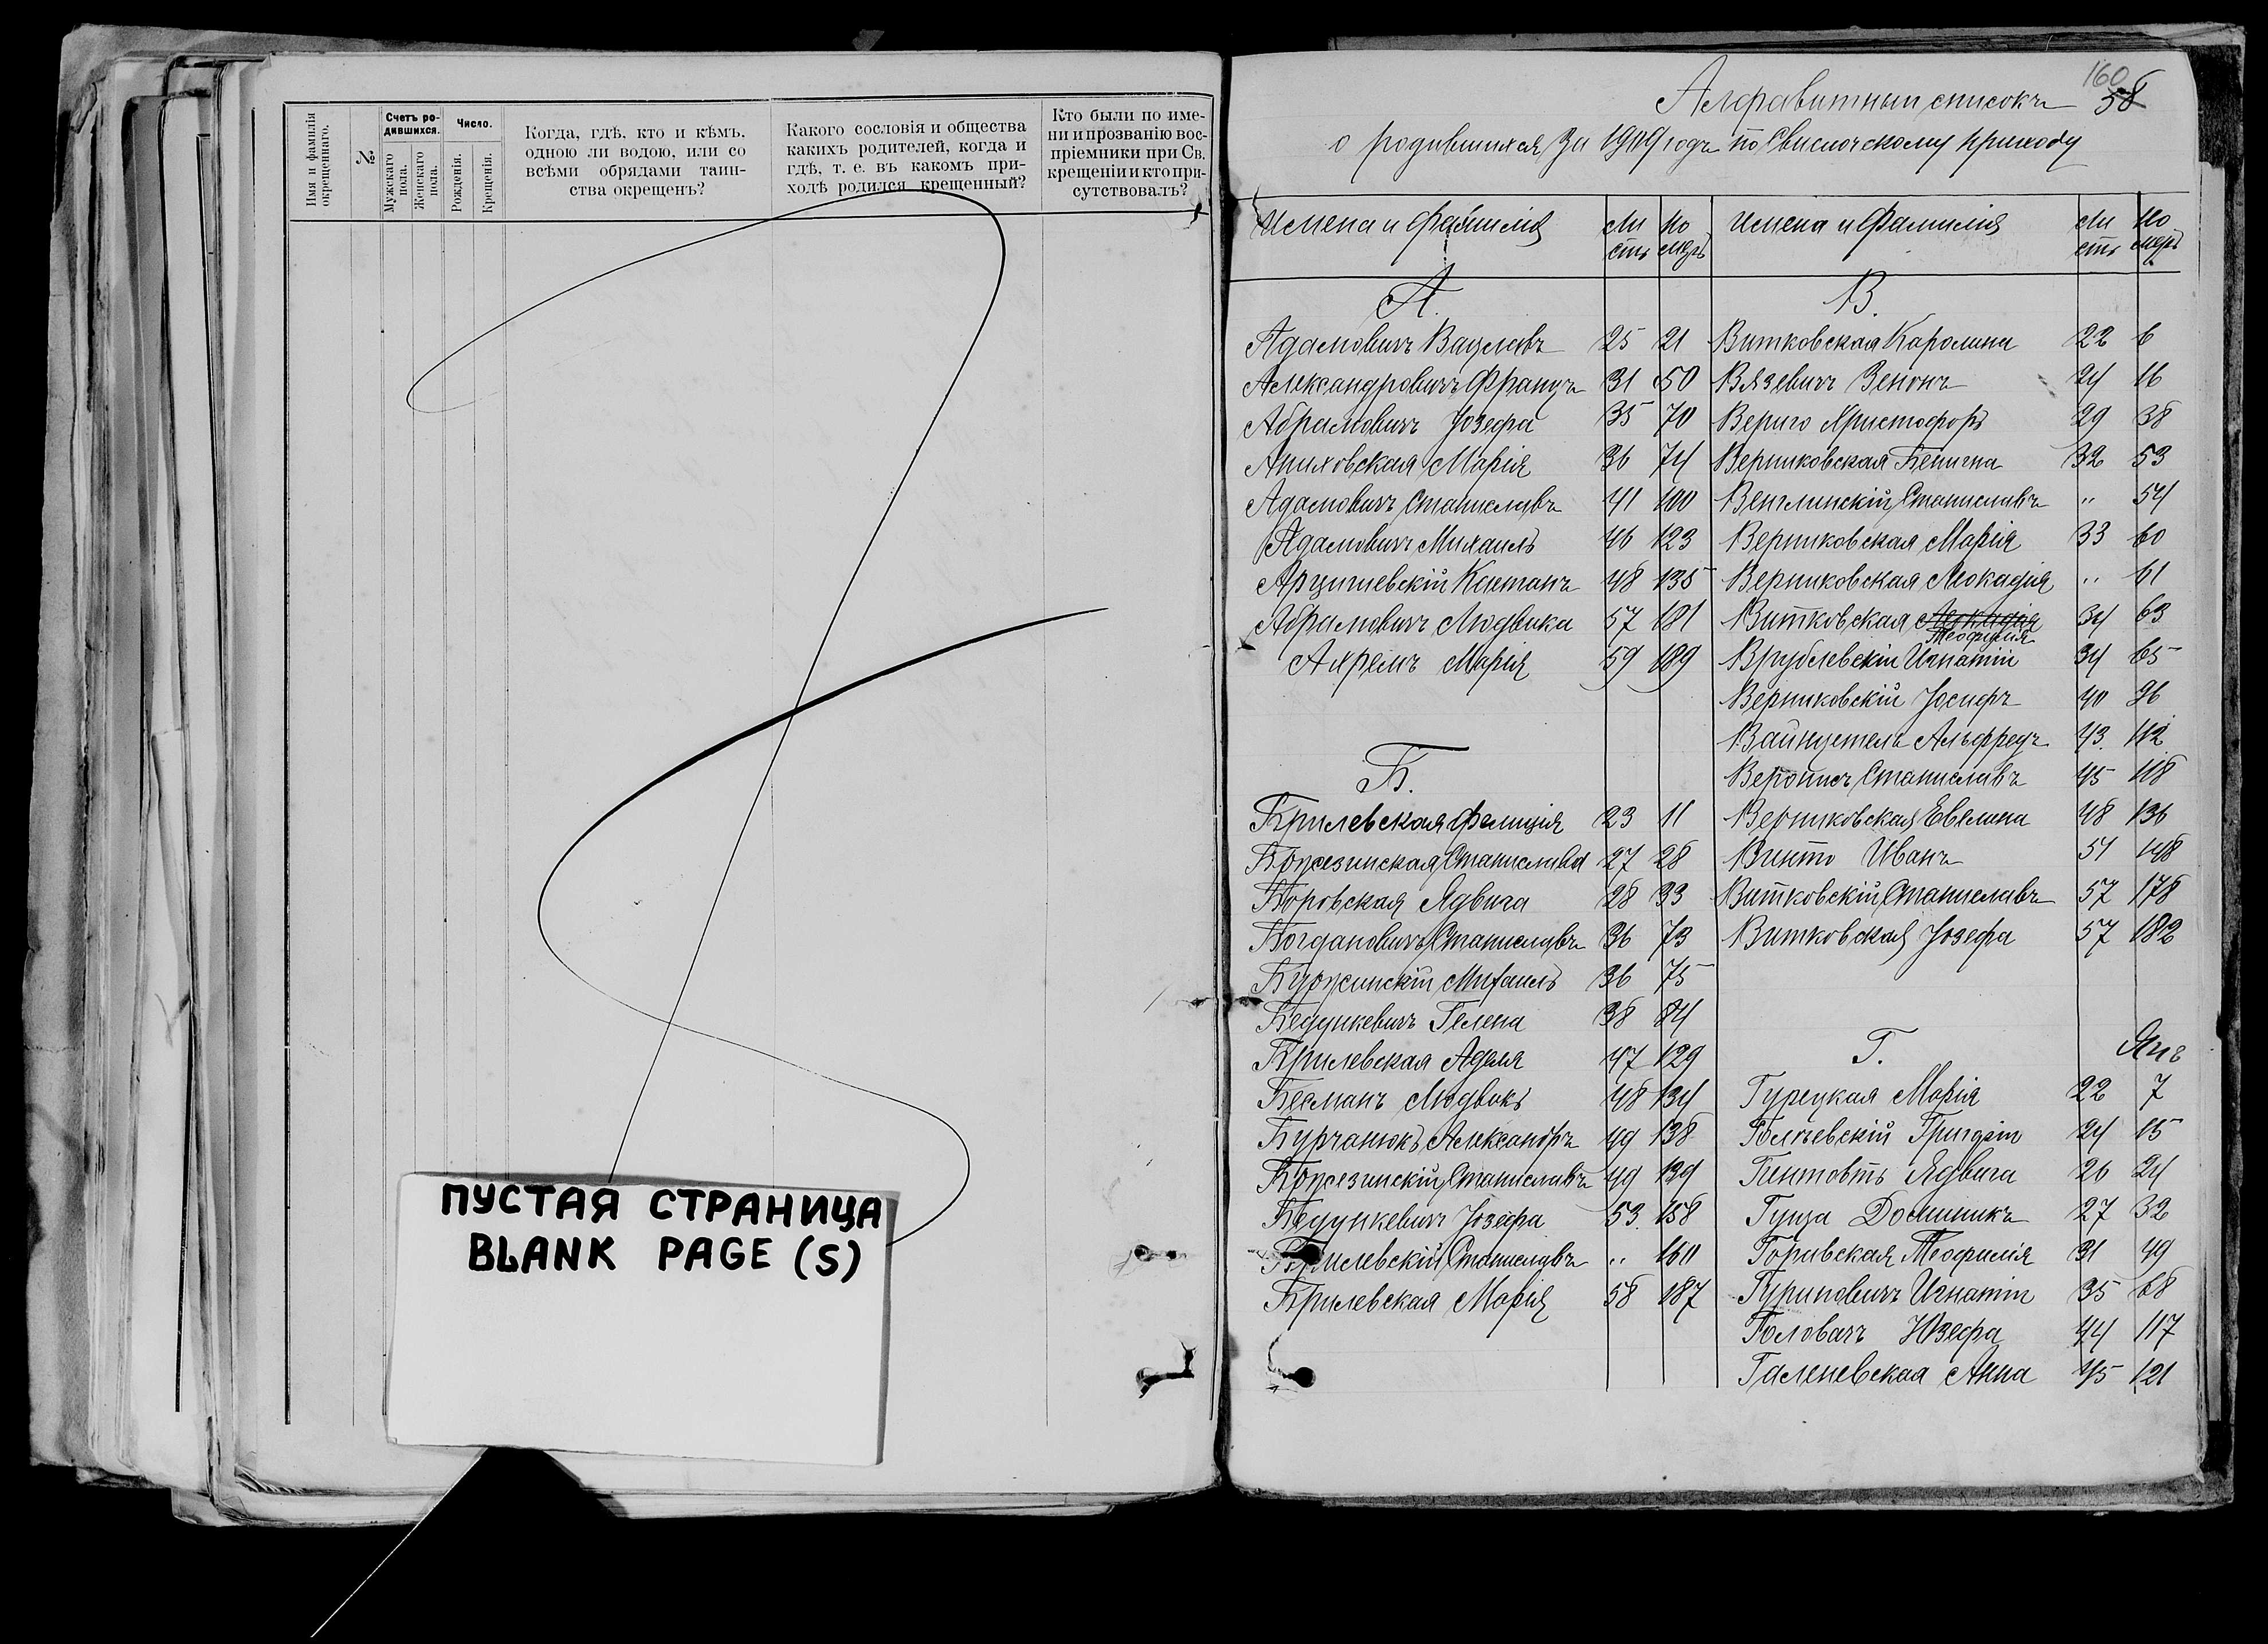 Имя и фамилія окрещеннаго.
№
Счетъ ро-
дившихся.
Мужскаго пола.
Женскаго пола.
Число.
Рожденія.
Крещенія.
Когда, гдѣ, кто и кѣмъ,
одною ли водою, или со
всѣми обрядами таин-
ства окрещенъ?
Какого сословія и общества
какихъ родителей, когда и
гдѣ, т. е. въ какомъ при-
ходѣ родился крещенный?
Кто были по име-
ни и прозванію вос-
пріемники при Св.
крещеніи и кто при-
сутствовалъ?
ПУСТАЯ СТРАНИЦА
BLANK PAGE (S)
160
58
Алфавитный списокъ
о родившихся за 1909 годъ по Свислочскому приходу
Имена и фамилія
Ли
стъ
Но
меръ
Имена и фамилія
Ли
стъ
Но
меръ
А.
Адамовичъ Вацлавъ 25 21
Александровичъ Францъ 31 50
Абрамовичъ Іозефа 35 70
Аниховская Марія 36 74
Адамовичъ Станиславъ 41 100
Адамовичъ Михаилъ 46 123
Арцишевскій Каетанъ 48 135
Абрамовичъ Людвика 57 181
Ахремъ Марія 59 189
Б.
Брилевская Фелиція 23 11
Бржезинская Станислава 27 28
Боровская Ядвига 28 33
Богдановичъ Станиславъ 36 73
Буржинскій Михаилъ 36 75
Бедункевичъ Гелена 38 84
Брилевская Аделя 47 129
Людвикъ 48 134
Бурчанюкъ Александръ 49 138
Бржезинскій Станиславъ 49 139
Бедункевичъ Іозефа 53. 158
Брилевскій Станиславъ " 160
Брилевская Марія 58 187
В.
Витковская Каролина 22 6
Вязевичъ Зенонъ 24 16
Вериго Христофоръ 29 38
Верниковская Бенигна 32 53
Венглинскій Станиславъ " 54
Верниковская Марія 33 60
Верниковская Леокадія " 61
Витковская Леокадія 34 63
Теофилія
Врублевскій Игнатій 34 65
Верниковскій Іосифъ 40 96
Альфредъ 43. 112
Станиславъ 45 118
Верниковская Евелина 48 136
Винто Иванъ 51 148
Витковскій Станиславъ 57 178
Витковская Іозефа 57 182
Г.
Гурецкая Марія 22 7
Григорій 24 15
Гентовтъ Ядвига 26 24
Гунза Доминикъ 27 32
Горавская Теофилія 31 49
Гуриновичъ Игнатій 35 68
Головачъ Юзефа 44 117
Галеневская Анна 45 121